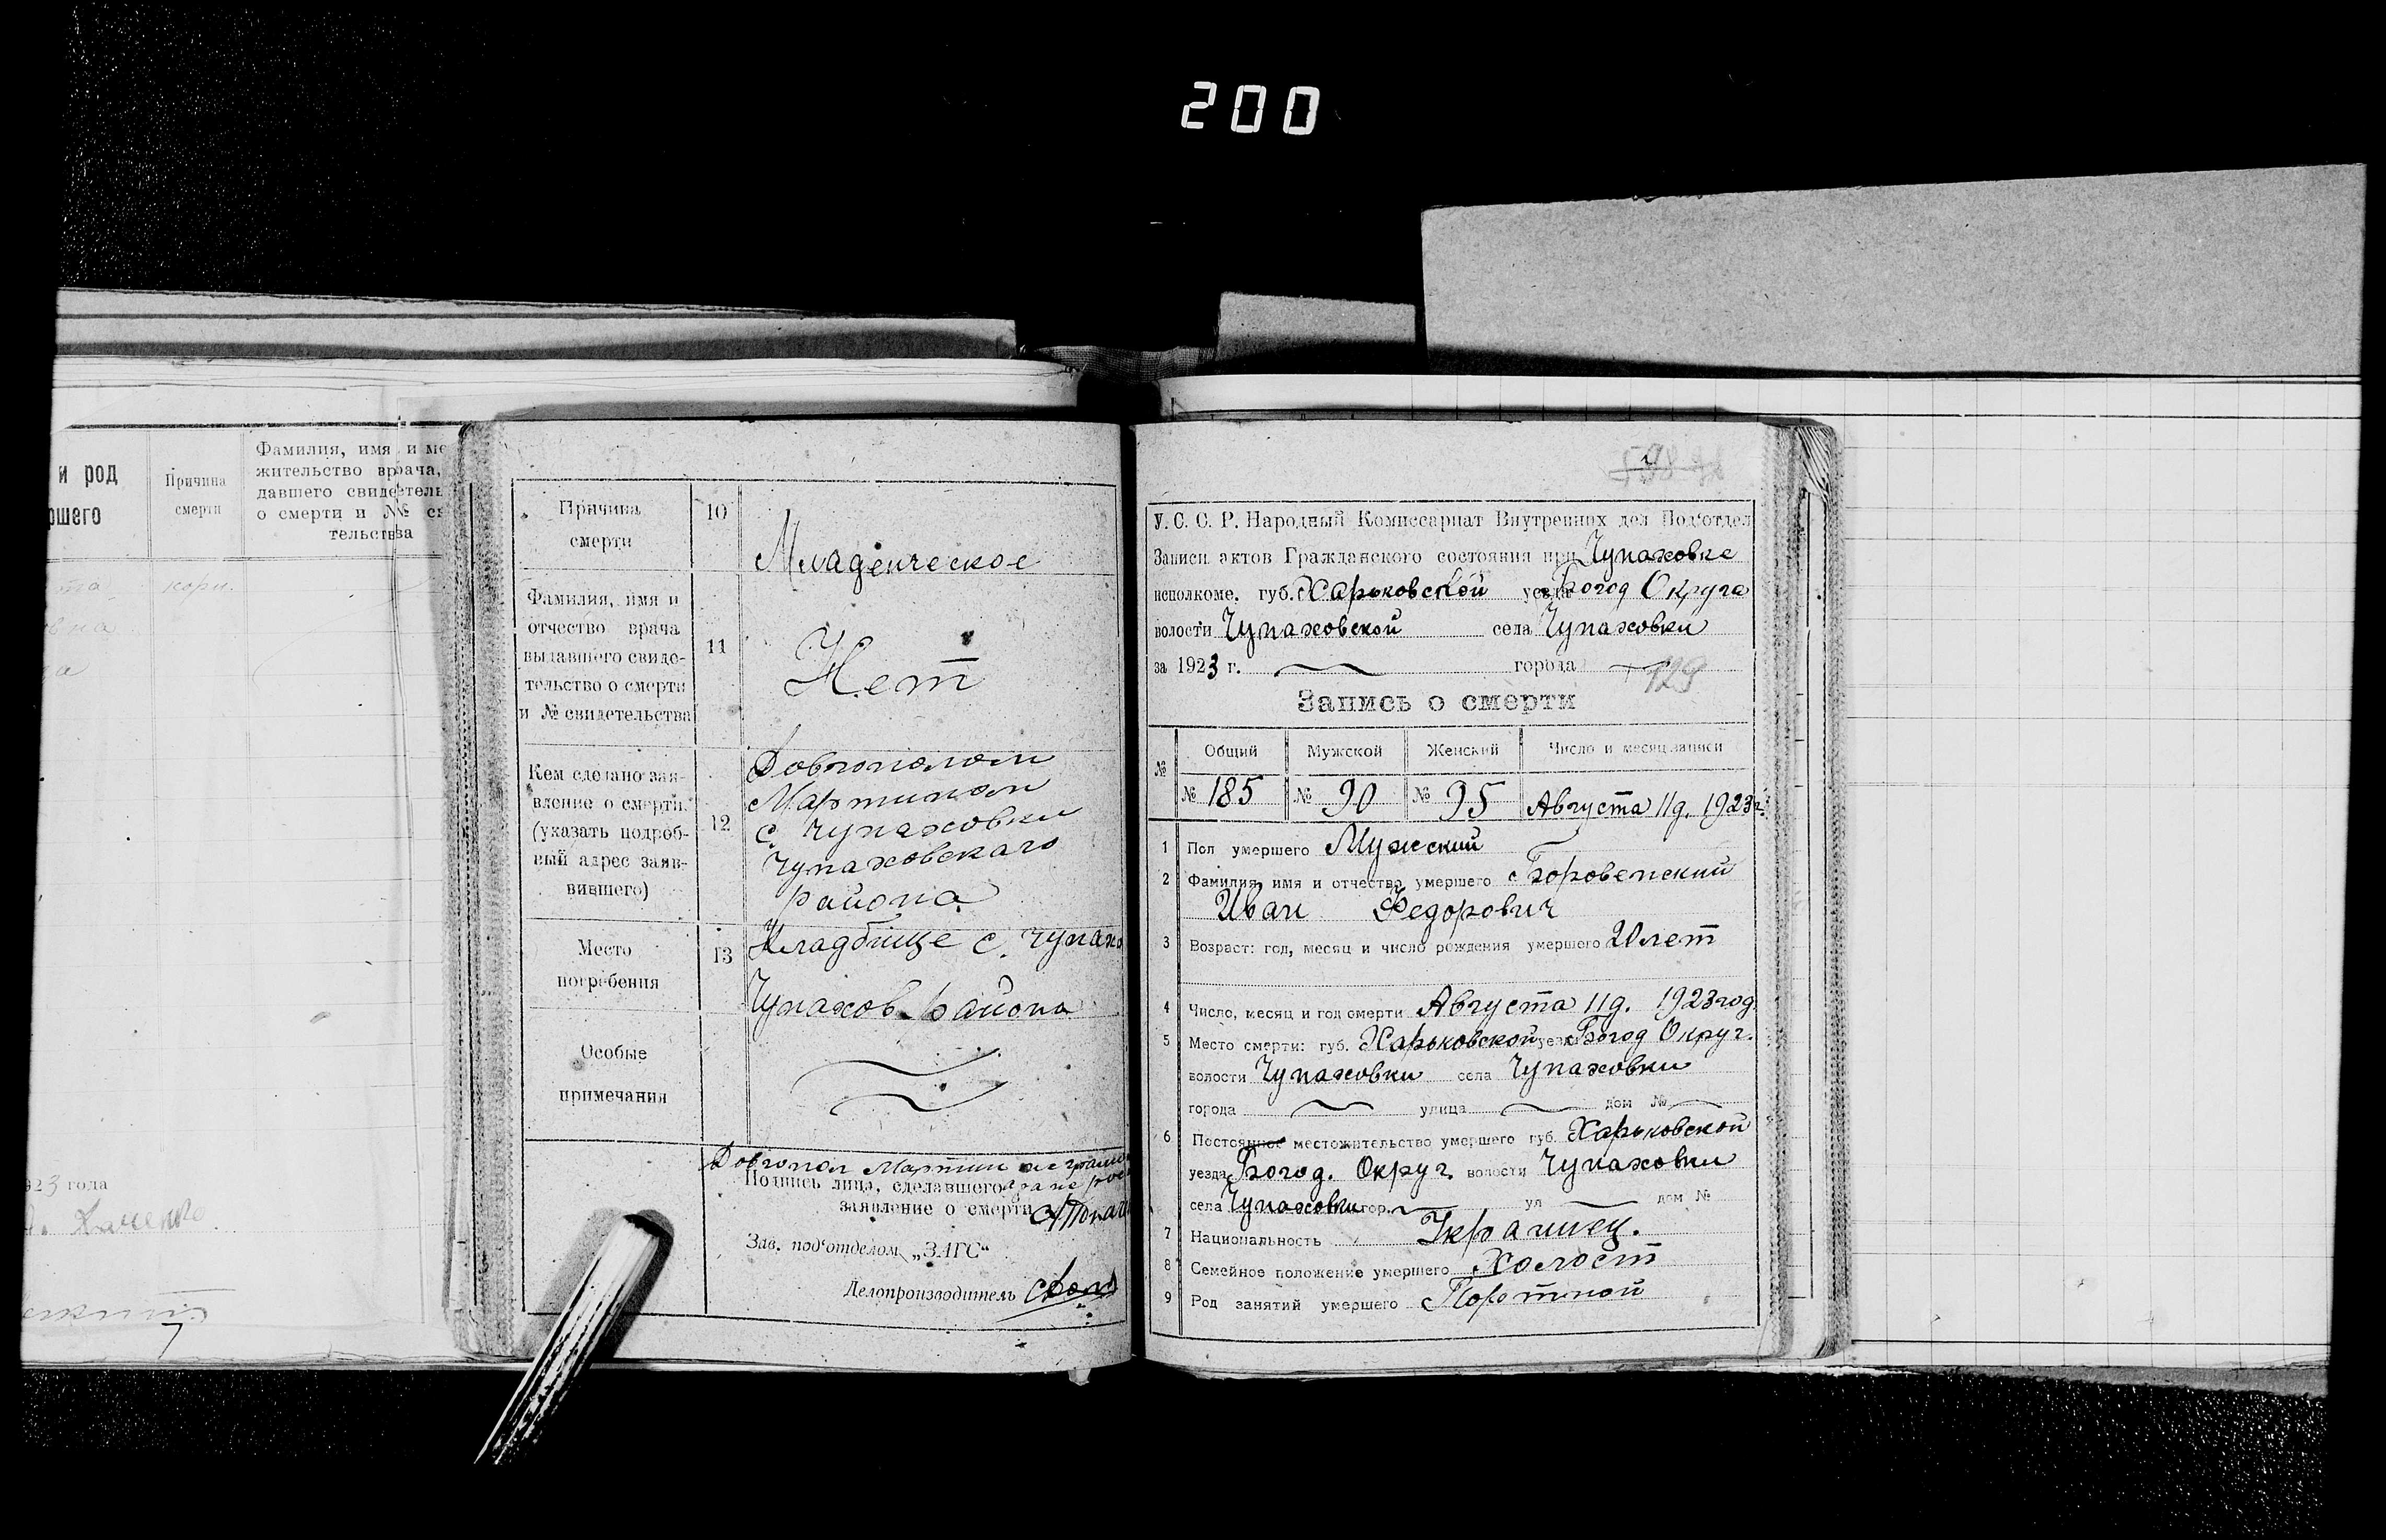 200
и род
ршего
Причина
смерти
Фамилия, имя и ме
жительство врача,
давшего свидетель
о смерти и №№ св
тельства
та
кори.
вна
23 года
Причина
смерти
10
Младенческое
Фамилия, имя и
отчество врача
выдавшего свиде-
тельство о смерти
и № свидетельства
11
Нет
Кем сделано зая-
вление о смерти.
(указать подроб-
ный адрес заяв-
вившего)
12
Довгополом
Мартином
с. Чупаховки
Чупаховскаго
района
Место
погребения
13
Кладбище с. Чупахо
Чупахов. района
Особые
примечания
Довгопол Мартин
Подпись лица, сделавшего
заявление о смерти
Зав. под'отделом „ЗАГС“
Делопроизводитель
У. С. С. Р. Народный Комиссариат Внутренних дел Под'отдел
Записи актов Гражданского состояния при Чупаховке
исполкоме. губ. Харьковской уезда Богод Округа
волости Чупаховской села Чупаховки
за 1923 г. города
129
Запись о смерти
№ Общий Мужской Женский Число и месяц записи
№ 185 № 90 № 95 Августа 11 д. 1923 г.
1 Пол умершего Мужский
2 Фамилия, имя и отчество умершего Боровенский
Иван Федорович
3 Возраст: год, месяц и число рождения умершего 20 лет
4 Число, месяц и год смерти Августа 11 д. 1923 год.
5 Место смерти: губ. Харьковской уезда Богод Округ.
волости Чупаховки села Чупаховки
города улица дом №
6 Постоянное местожительство умершего губ. Харьковской
уезда Богод. Округ. волости Чупаховки
села Чупаховки гор. ул дом №
7 Национальность Украинец.
8 Семейное положение умершего Холост
9 Род занятий умершего Портной